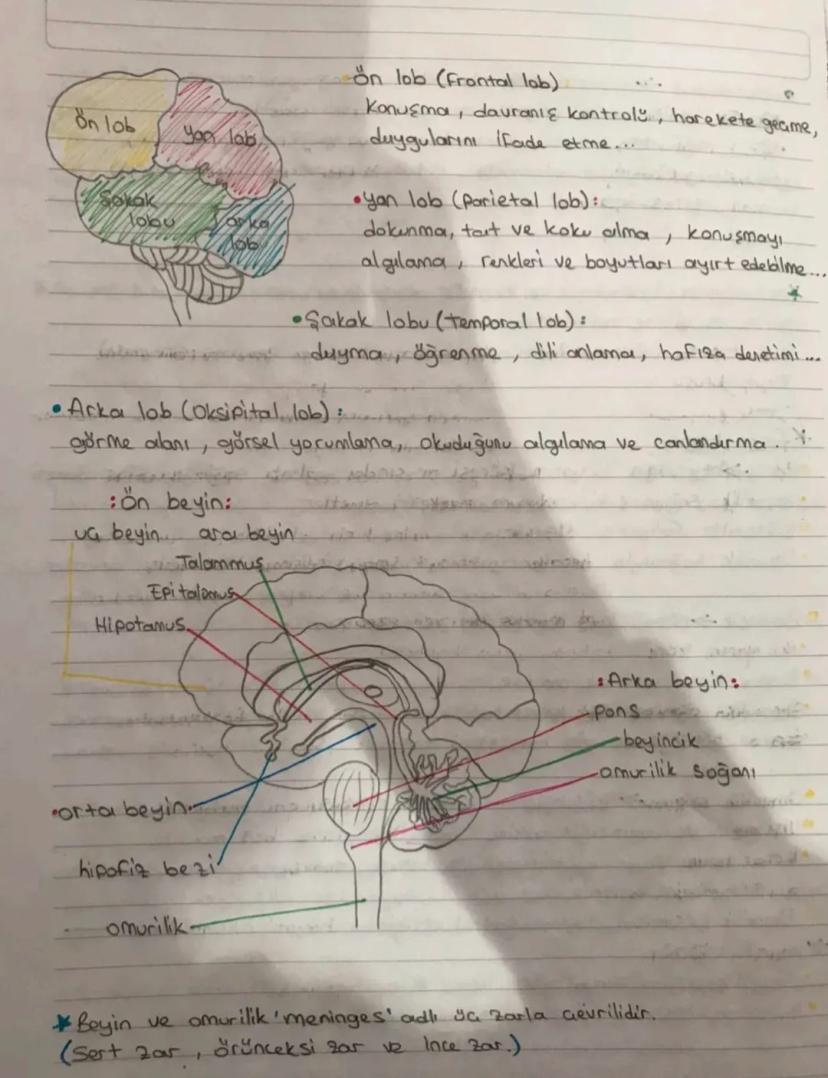 Ön lob
Yan lob
Şakak
lobu
arka
lob
Ön lob (Frontal lob)
Konuşma, davranış kontrolü, harekete geçme,
duygularını ifade etme...
•Yan lob (Parietal lob):
dokunma, tat ve koku alma, konuşmayı
algılama, renkleri ve boyutları ayırt edebilme...
•Şakak lobu (Temporal lob):
duyma, öğrenme, dili anlama, hafıza denetimi...
• Arka lob (Oksipital lob):
görme alanı, görsel yorumlama, okuduğunu algılama ve canlandırma.
:Ön beyin:
uç beyin ara beyin
Talammus
Epitalamus
Hipotamus
:Arka beyin:
pons
beyincik
omurilik soğanı
•orta beyin
hipofiz bezi
omurilik
* Beyin ve omurilik 'meninges' adlı üç zarla çevrilidir.
(Sert zar, örünceksi zar ve ince zar.)